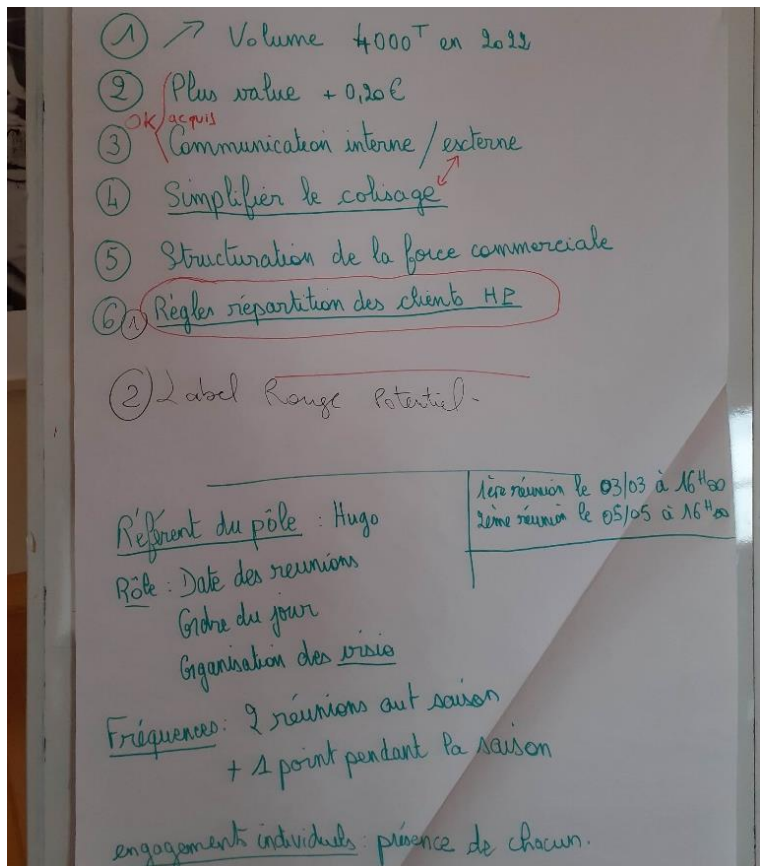 ① ↗ Volume 4000ᵀ en 2022
② Plus value + 0,20€
OK/acquis
③ Communication interne / externe
④ Simplifier le colisage
⑤ Structuration de la force commerciale
⑥ ① Règles répartition des clients HP
② Label Rouge Potentiel -
1ère réunion le 03/03 à 16H00
2ème réunion le 05/05 à 16H00
Référent du pôle : Hugo
Rôle : Date des reunions
Ordre du jour
Organisation des visio
Fréquences : 2 réunions aut saison
+ 1 point pendant la saison
engagements individuels : présence de chacun.